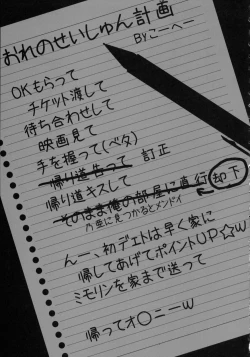 おれのせいしゅん計画
Byこーへー
OKもらって
チケット渡して
待ち合わせして
映画見て
手を握って(ベタ)
帰り道告って 訂正
帰り道キスして
そのまま俺の部屋に直行 却下
乃亜に見つかるとメンドイ
んー、初デェトは早く家に
帰してあげてポイントUP☆w
ミモリンを家まで送って
帰ってオ〇ニーw